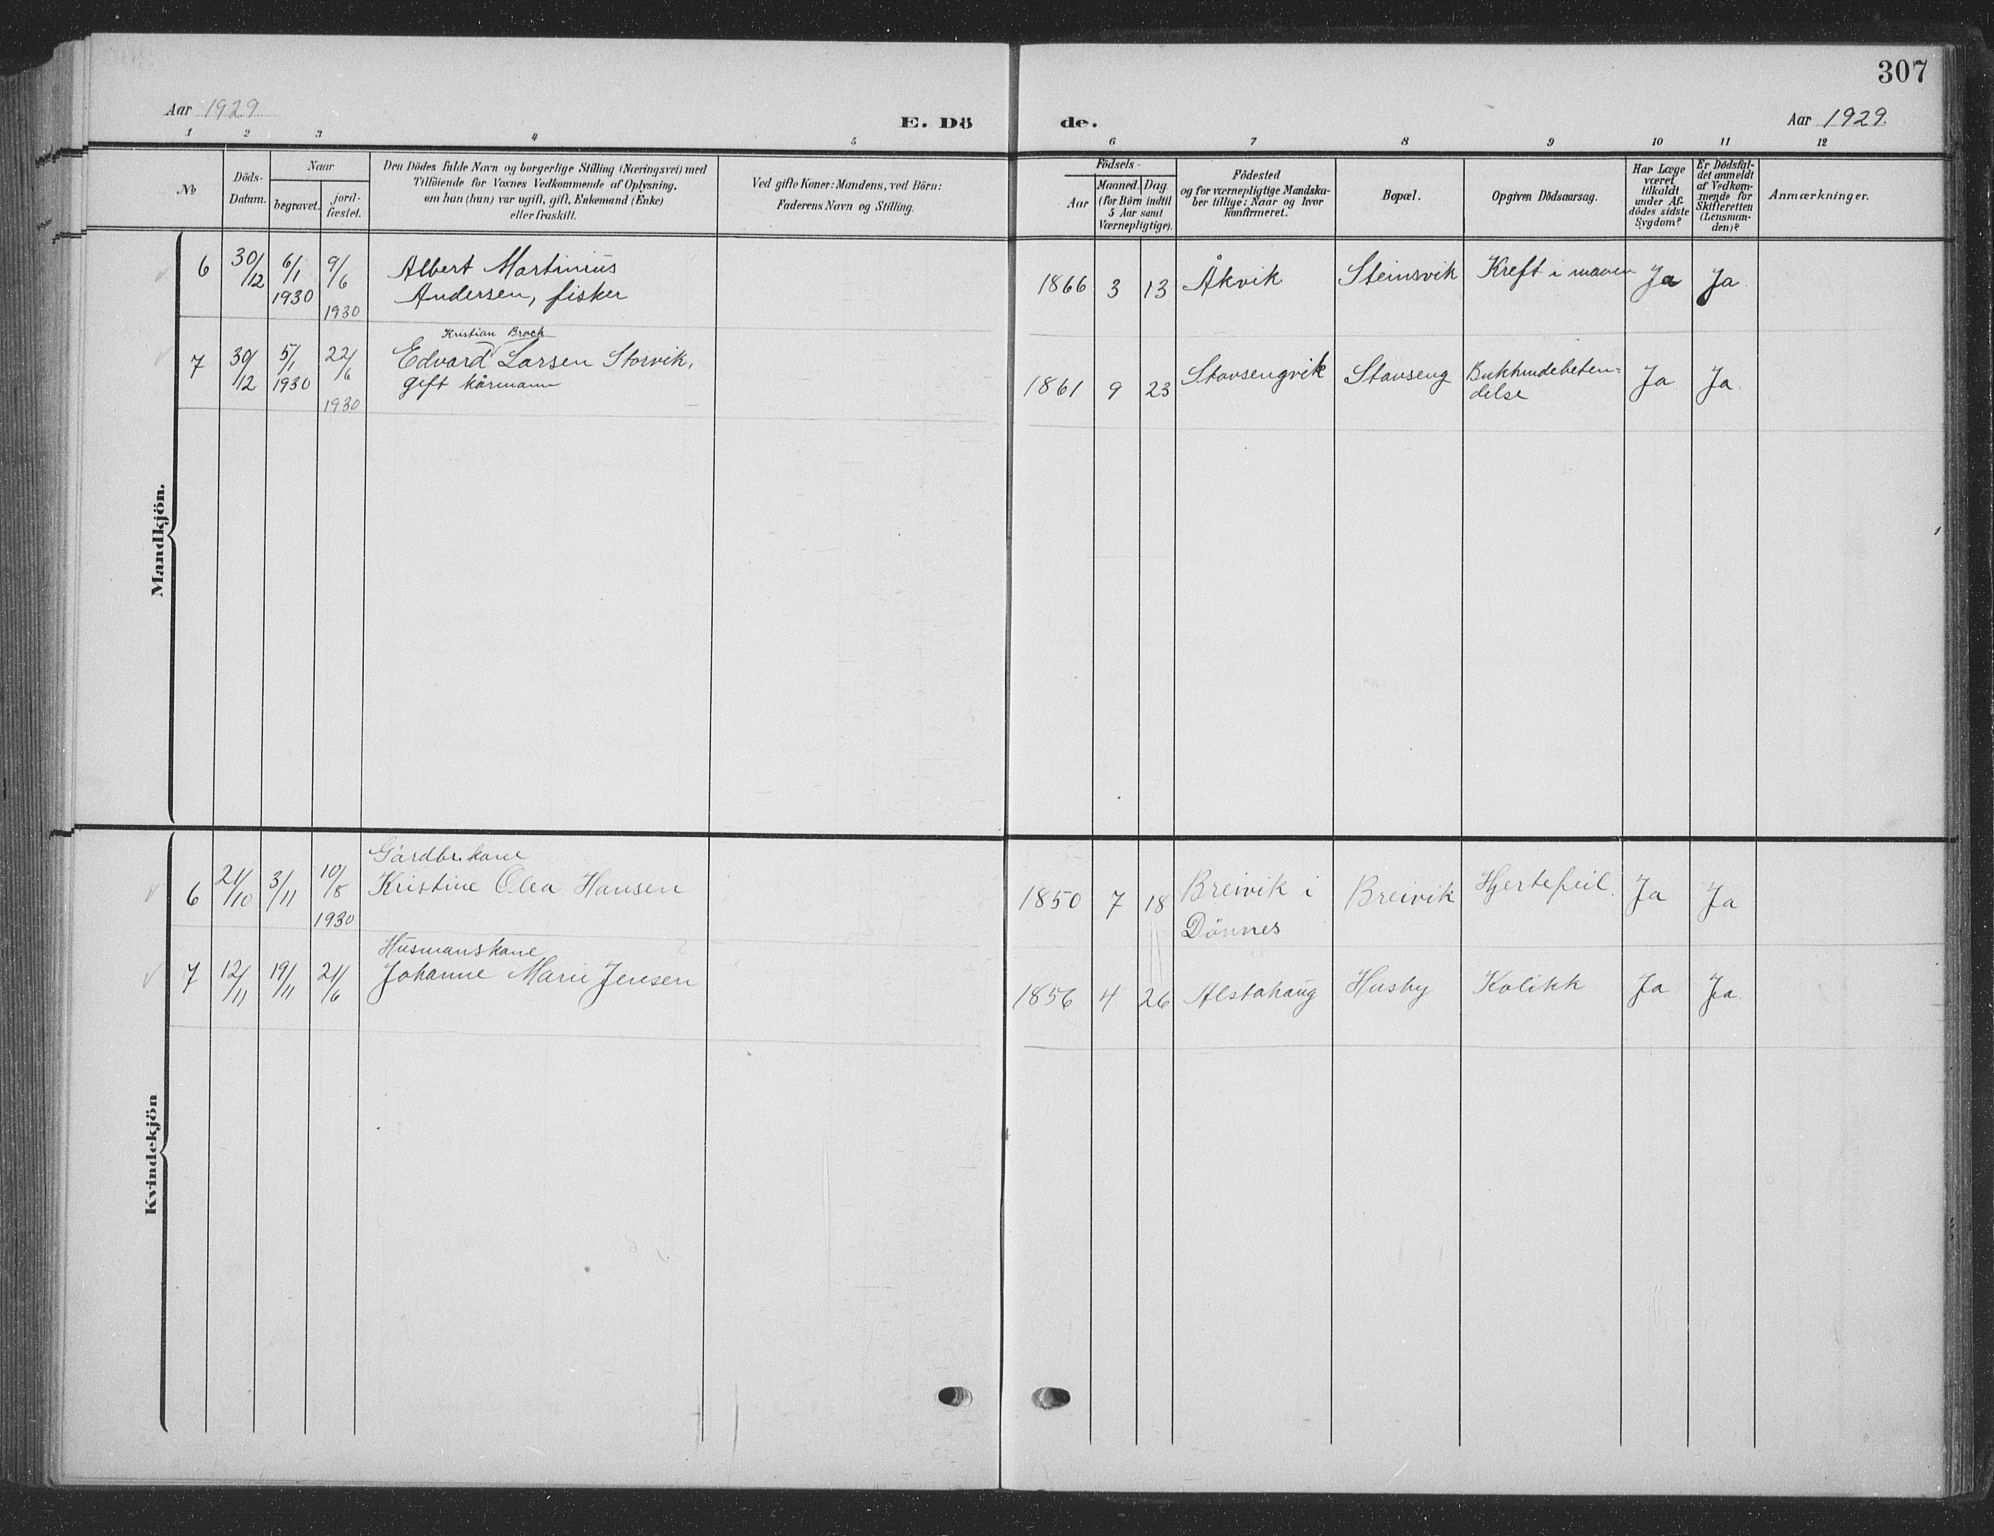 307
Aar 1929
E. Dö
de.
Aar 1929.
1 2 3 4 5 6 7 8 9 10 11 12
No
Döds-
Datum.
Naar
begravet.
jord-
fæstet.
Den Dödes fulde Navn og borgerlige Stilling (Næringsvei) med
Tilföiende for Voxnes Vedkommende af Oplysning,
om han (hun) var ugift, gift, Enkemand (Enke)
eller fraskilt.
Ved gifte Koner: Mandens, ved Börn:
Faderens Navn og Stilling.
Födsels-
Aar
Maaned. Dag
(for Börn indtil
5 Aar samt
Værnepligtige).
Födested
og for værnepligtige Mandska-
ber tillige: Naar og hvor
konfirmeret.
Bopæl.
Opgiven Dödsaarsag.
Har Læge
været
tilkaldt
under Af-
dödes sidste
Sygdom?
Er Dödsfal-
det anmeldt
af Vedkom-
mende for
Skifteretten
(Lensman-
den)?
Anmærkninger.
Mandkjön.
6 30/12 6/1 1930 9/6 1930
Albert Martinius
Andersen, fisker
1866 3 13 Åkvik Steinsvik Kreft i maven Ja Ja
Kristian Broch
7 30/12 5/1 1930 22/6 1930
Edvard Larsen Storvik,
gift kårmann
1861 9 23 Stavsengvik Stavseng Bukhindebeten-
delse
Ja Ja.
Kvindekjön
Gårdbr. kone
6 21/10 3/11 10/8 1930
Kristine Olea Hansen
1850 7 18 Breivik i
Dönnes
Breivik Hjertefeil. Ja Ja
Husmanskone
7 12/11 19/11 21/6 Johanne Marie Jensen
1856 4 26 Alstahaug Husby Kolikk Ja Ja.